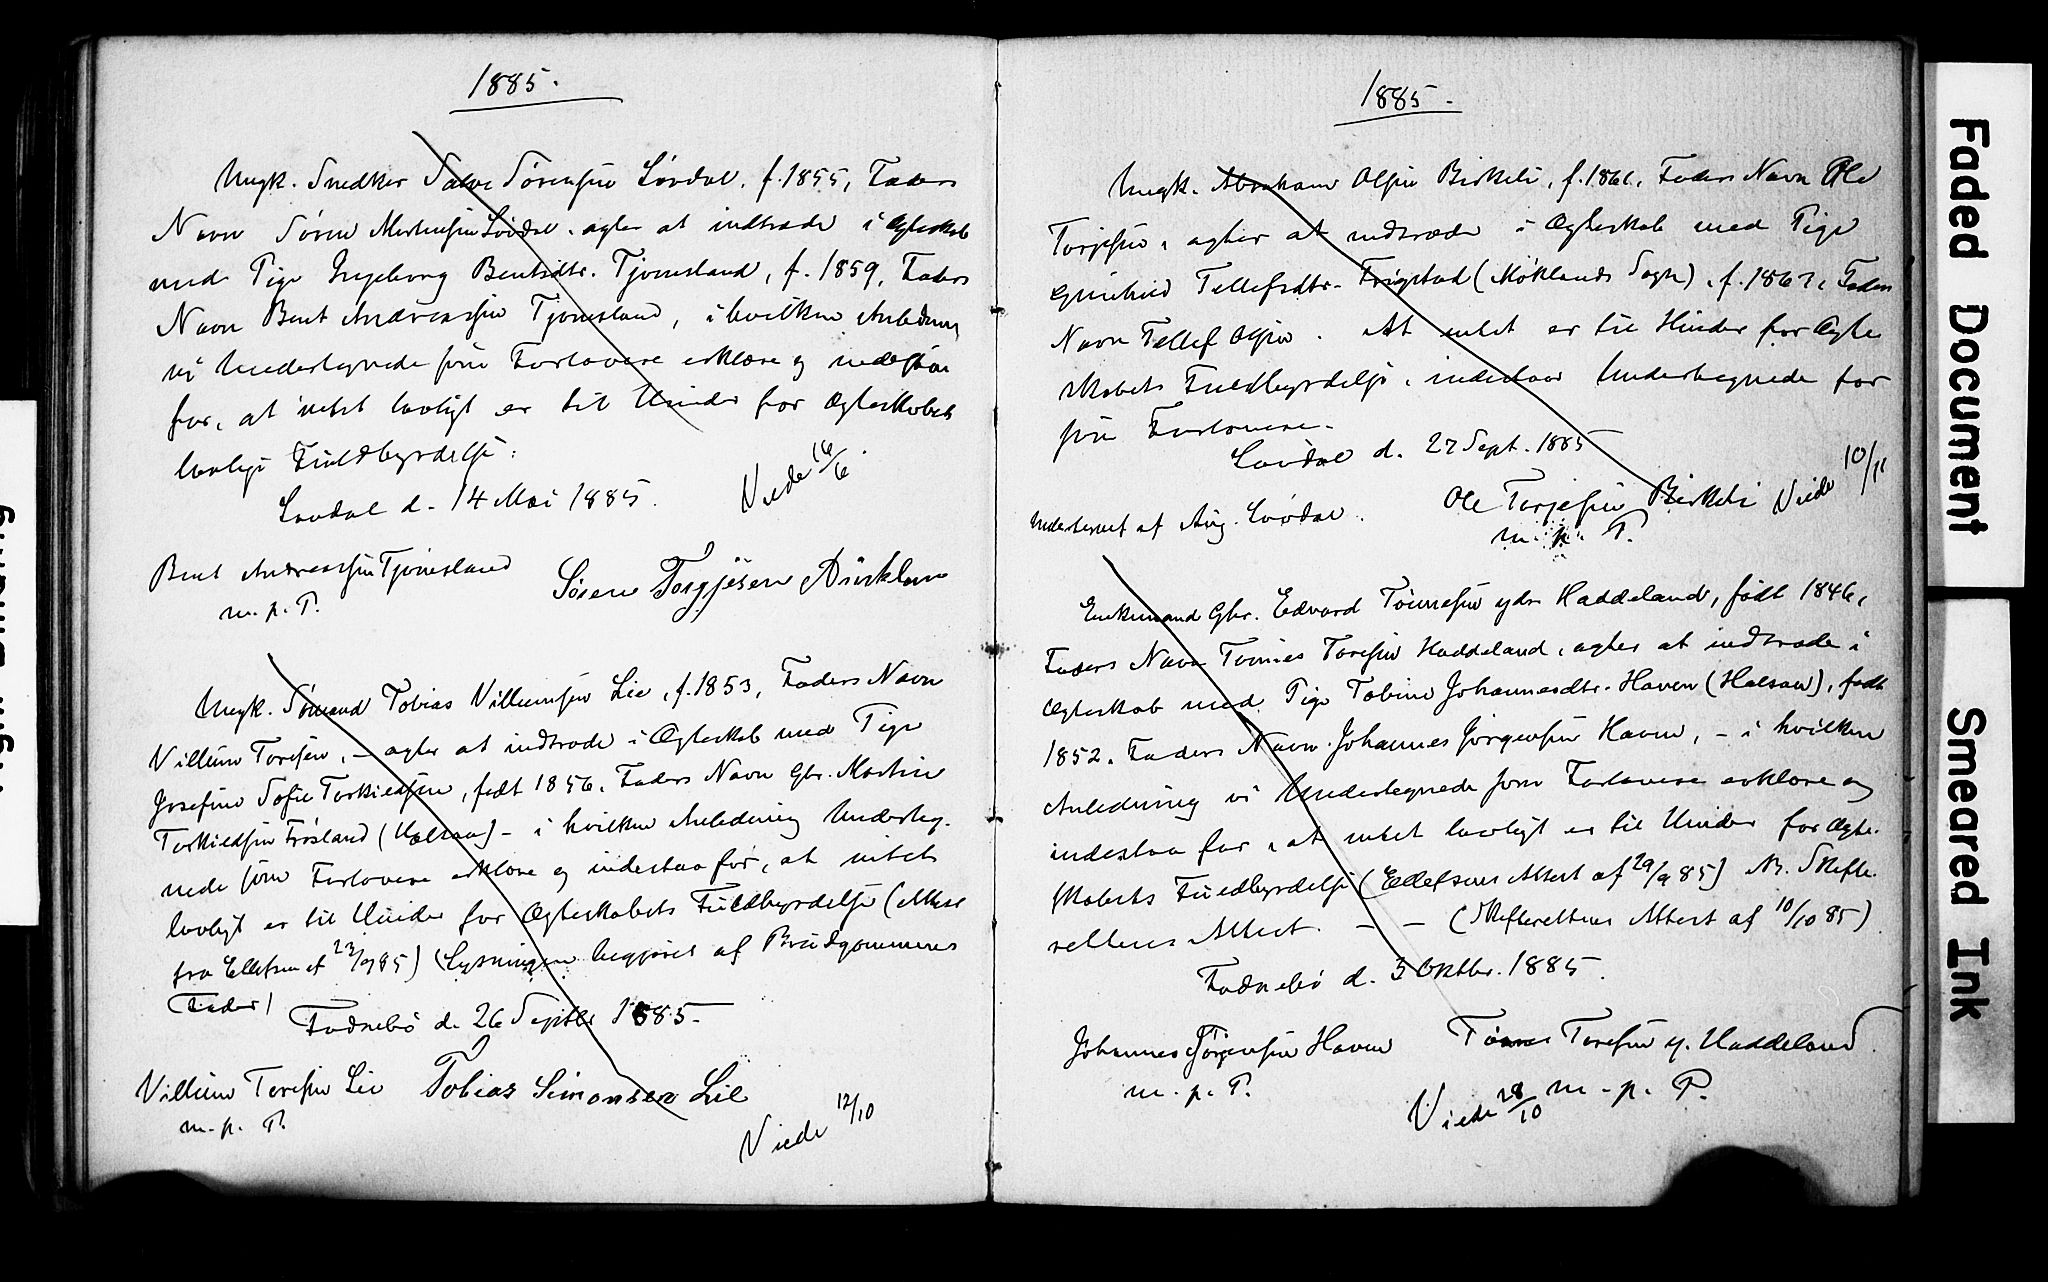 1885.
Ungk. Snedker Salve Sørensen Løvdal, f. 1855, Faders
Navn Søren Mortensen Løvdal, agter at indtræde i Ægteskab
med Pige Ingeborg Bentsdtr. Tjomsland, f. 1859, Faders
Navn Bent Andreassen Tjomsland, i hvilken Anledning
vi Undertegnede som Forlovere erklære og indestaa
for, at intet lovligt er til Hinder for Ægteskabets
lovlige Fuldbyrdelse.
Løvdal d. 14 Mai 1885.
Viede 16/6
Bent Andreassen Tjomsland
m. p. P.
Sören Torgjesen
Ungk. Sømand Tobias Villumsen Lie, f. 1853, Faders Navn
Villum Toresen, – agter at indtræde i Ægteskab med Pige
Josefine Sofie Torkildsen, født 1856, Faders Navn Gbr. Martin
Torkildsen Frøsland (Halsaa) – i hvilken Anledning Underteg-
nede som Forlovere erklære og indestaa for, at intet
lovligt er til Hinder for Ægteskabets Fuldbyrdelse (Attest
fra Ellefsen af 23/9 85) (Lysningen begjæres af Brudgommens
Fader)
Fodnebø d. 26 Septbr 1885.
Villum Toresen Lie
m. p. P.
Tobias Simonsen Lie
Viede 12/10
1885.
Ungk. Abraham Olsen Birkeli, f. 1861, Faders Navn Ole
Torjesen, agter at indtræde i Ægteskab med Pige
Gunhild Tellefsdtr. Frigstad (Høklands Sogn), f. 1867, Faders
Navn Tellef Olsen. At intet er til Hinder for Ægte
skabets Fuldbyrdelse, indestaar Undertegnede for
som Forlovere.
Løvdal d. 27 Sept. 1885
Underskrevet af Aug. Løvdal.
Ole Torjesen Birkeli
m. p. P.
Viede 10/11
Enkemand Gbr. Edvard Tønnesen ydr. Haddeland, født 1846,
Faders Navn Tønnes Toresen Haddeland, agter at indtræde i
Ægteskab med Pige Tobine Johannesdtr. Haven (Halsaa), født
1852. Faders Navn Johannes Jørgensen Haven, – i hvilken
Anledning vi Undertegnede som Forlovere erklære og
indestaa for, at intet lovligt er til Hinder for Ægte-
skabets Fuldbyrdelse (Ellefsens Attest af 29/9 85) NB. Skifte-
rettens Attest. – – (Skifterettens Attest af 10/10 85)
Fodnebø d. 3 Oktbr. 1885.
Johannes Jörgensen Haven
m. p. P.
Tönnes Toresen y. Haddeland
m. p. P.
Viede 28/10
Faded Document
Smeared Ink